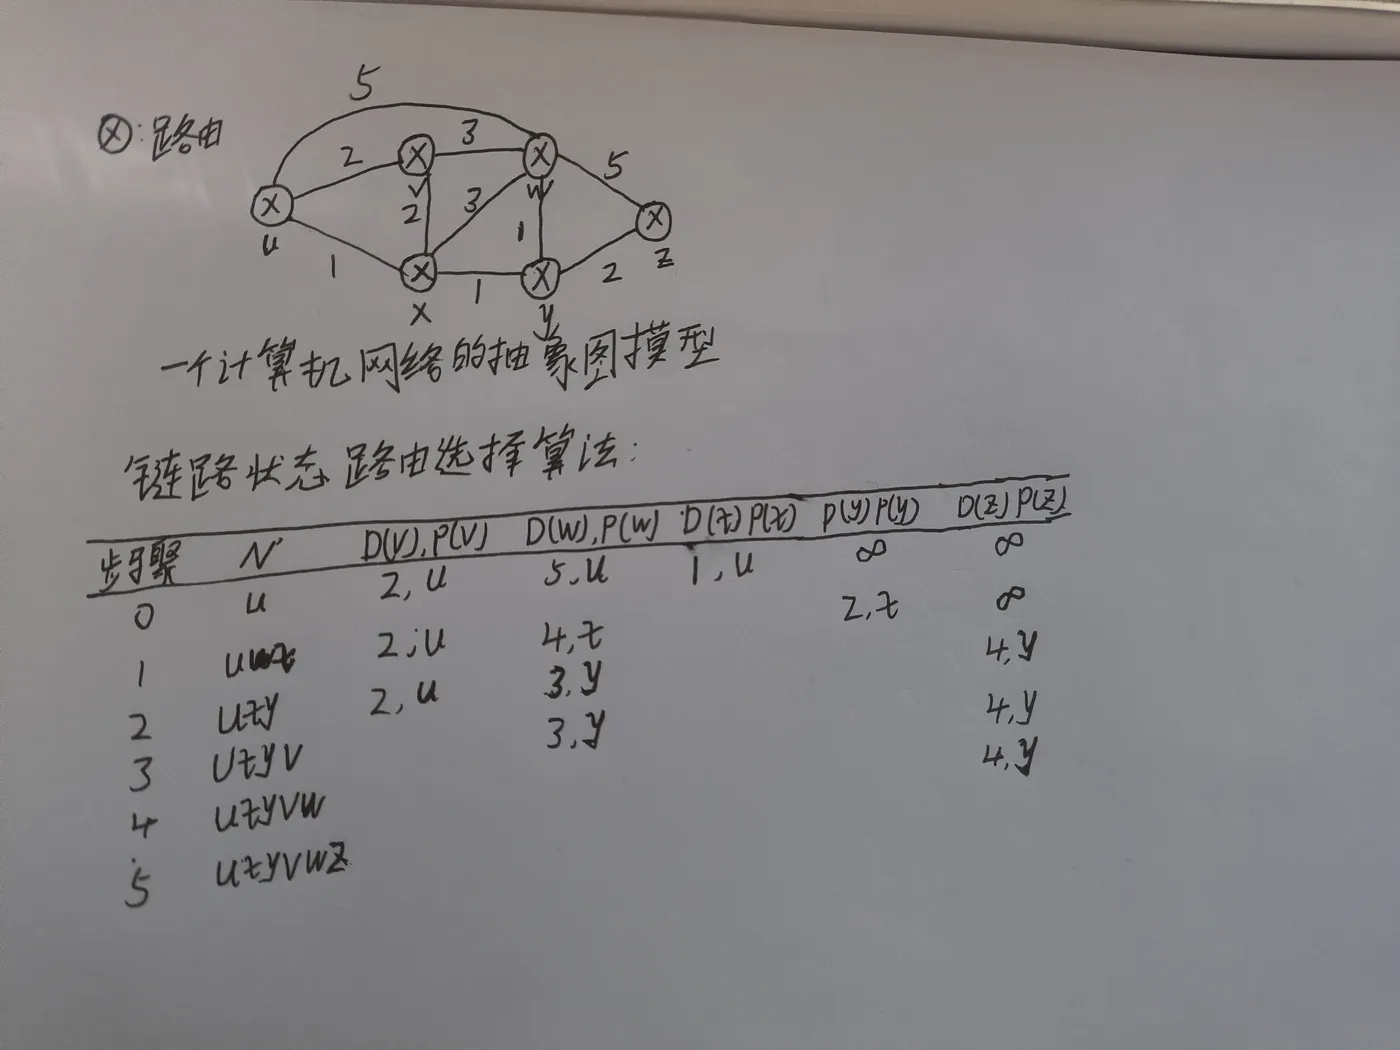 5
ⓧ:路由
2 3 5
v w
u 2 3 1 z
1 1 2
x y
一个计算机网络的抽象图模型
链路状态路由选择算法:
步骤 N' D(v),P(v) D(w),P(w) D(t)P(t) P(y)P(y) D(z)P(z)
0 u 2,u 5,u 1,u ∞ ∞
1 2,u 4,t 2,t ∞
2 uty 2,u 3,y 4,y
3 utyv 3,y 4,y
4 utyvw 4,y
5 utyvwz